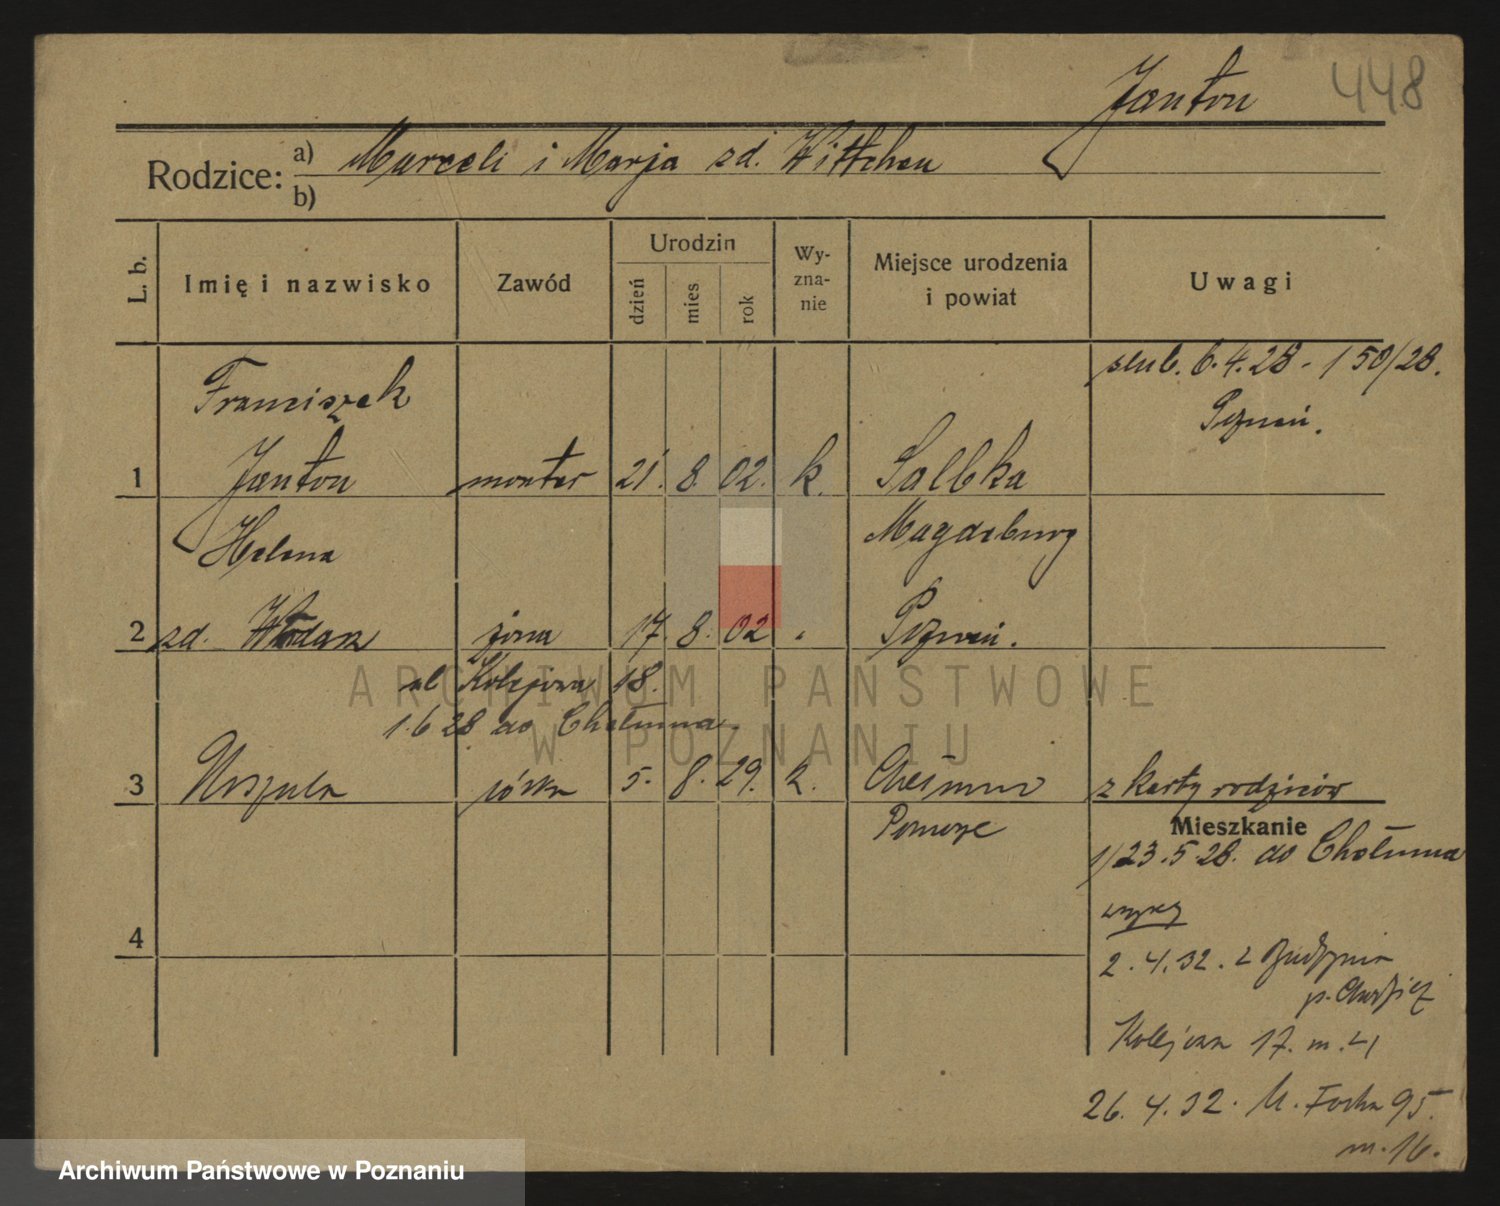 Janton 448
Rodzice: a) Marceli i Marja zd. Wittchen
b)
L. b. Imię i nazwisko Zawód Urodzin dzień mies rok Wyznanie Miejsce urodzenia i powiat Uwagi
ślub. 6.4.28 - 150/28.
Poznań.
Franciszek
1 Janton monter 21. 8. 02. k. Salbka
Helena Magdeburg
2 zd. Włodarz żona 17. 8. 02 Poznań.
ul Kolejowa 18.
1.6 28 do Chełmna
3 Urszula córka 5. 8. 29. k. Chełmno z karty rodziców
Pomorze
Mieszkanie
1/23.5.28. do Chełmna
4
2.4.32. z Budzynia
p. Chodzież
Kolejowa 17. m. 21
26.4.32. M. Focha 95.
m. 16.
ARCHIWUM PAŃSTWOWE
W POZNANIU
Archiwum Państwowe w Poznaniu